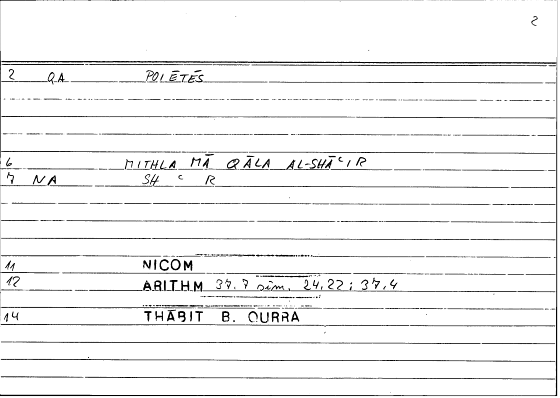 2
2 QA POIĒTĒS
6 MITHLA MĀ QĀLA AL-SHĀʿIR
7 NA SH ʿ R
11 NICOM
12 ARITHM 37.7 sim. 24,22; 37,4
14 THĀBIT B. QURRA